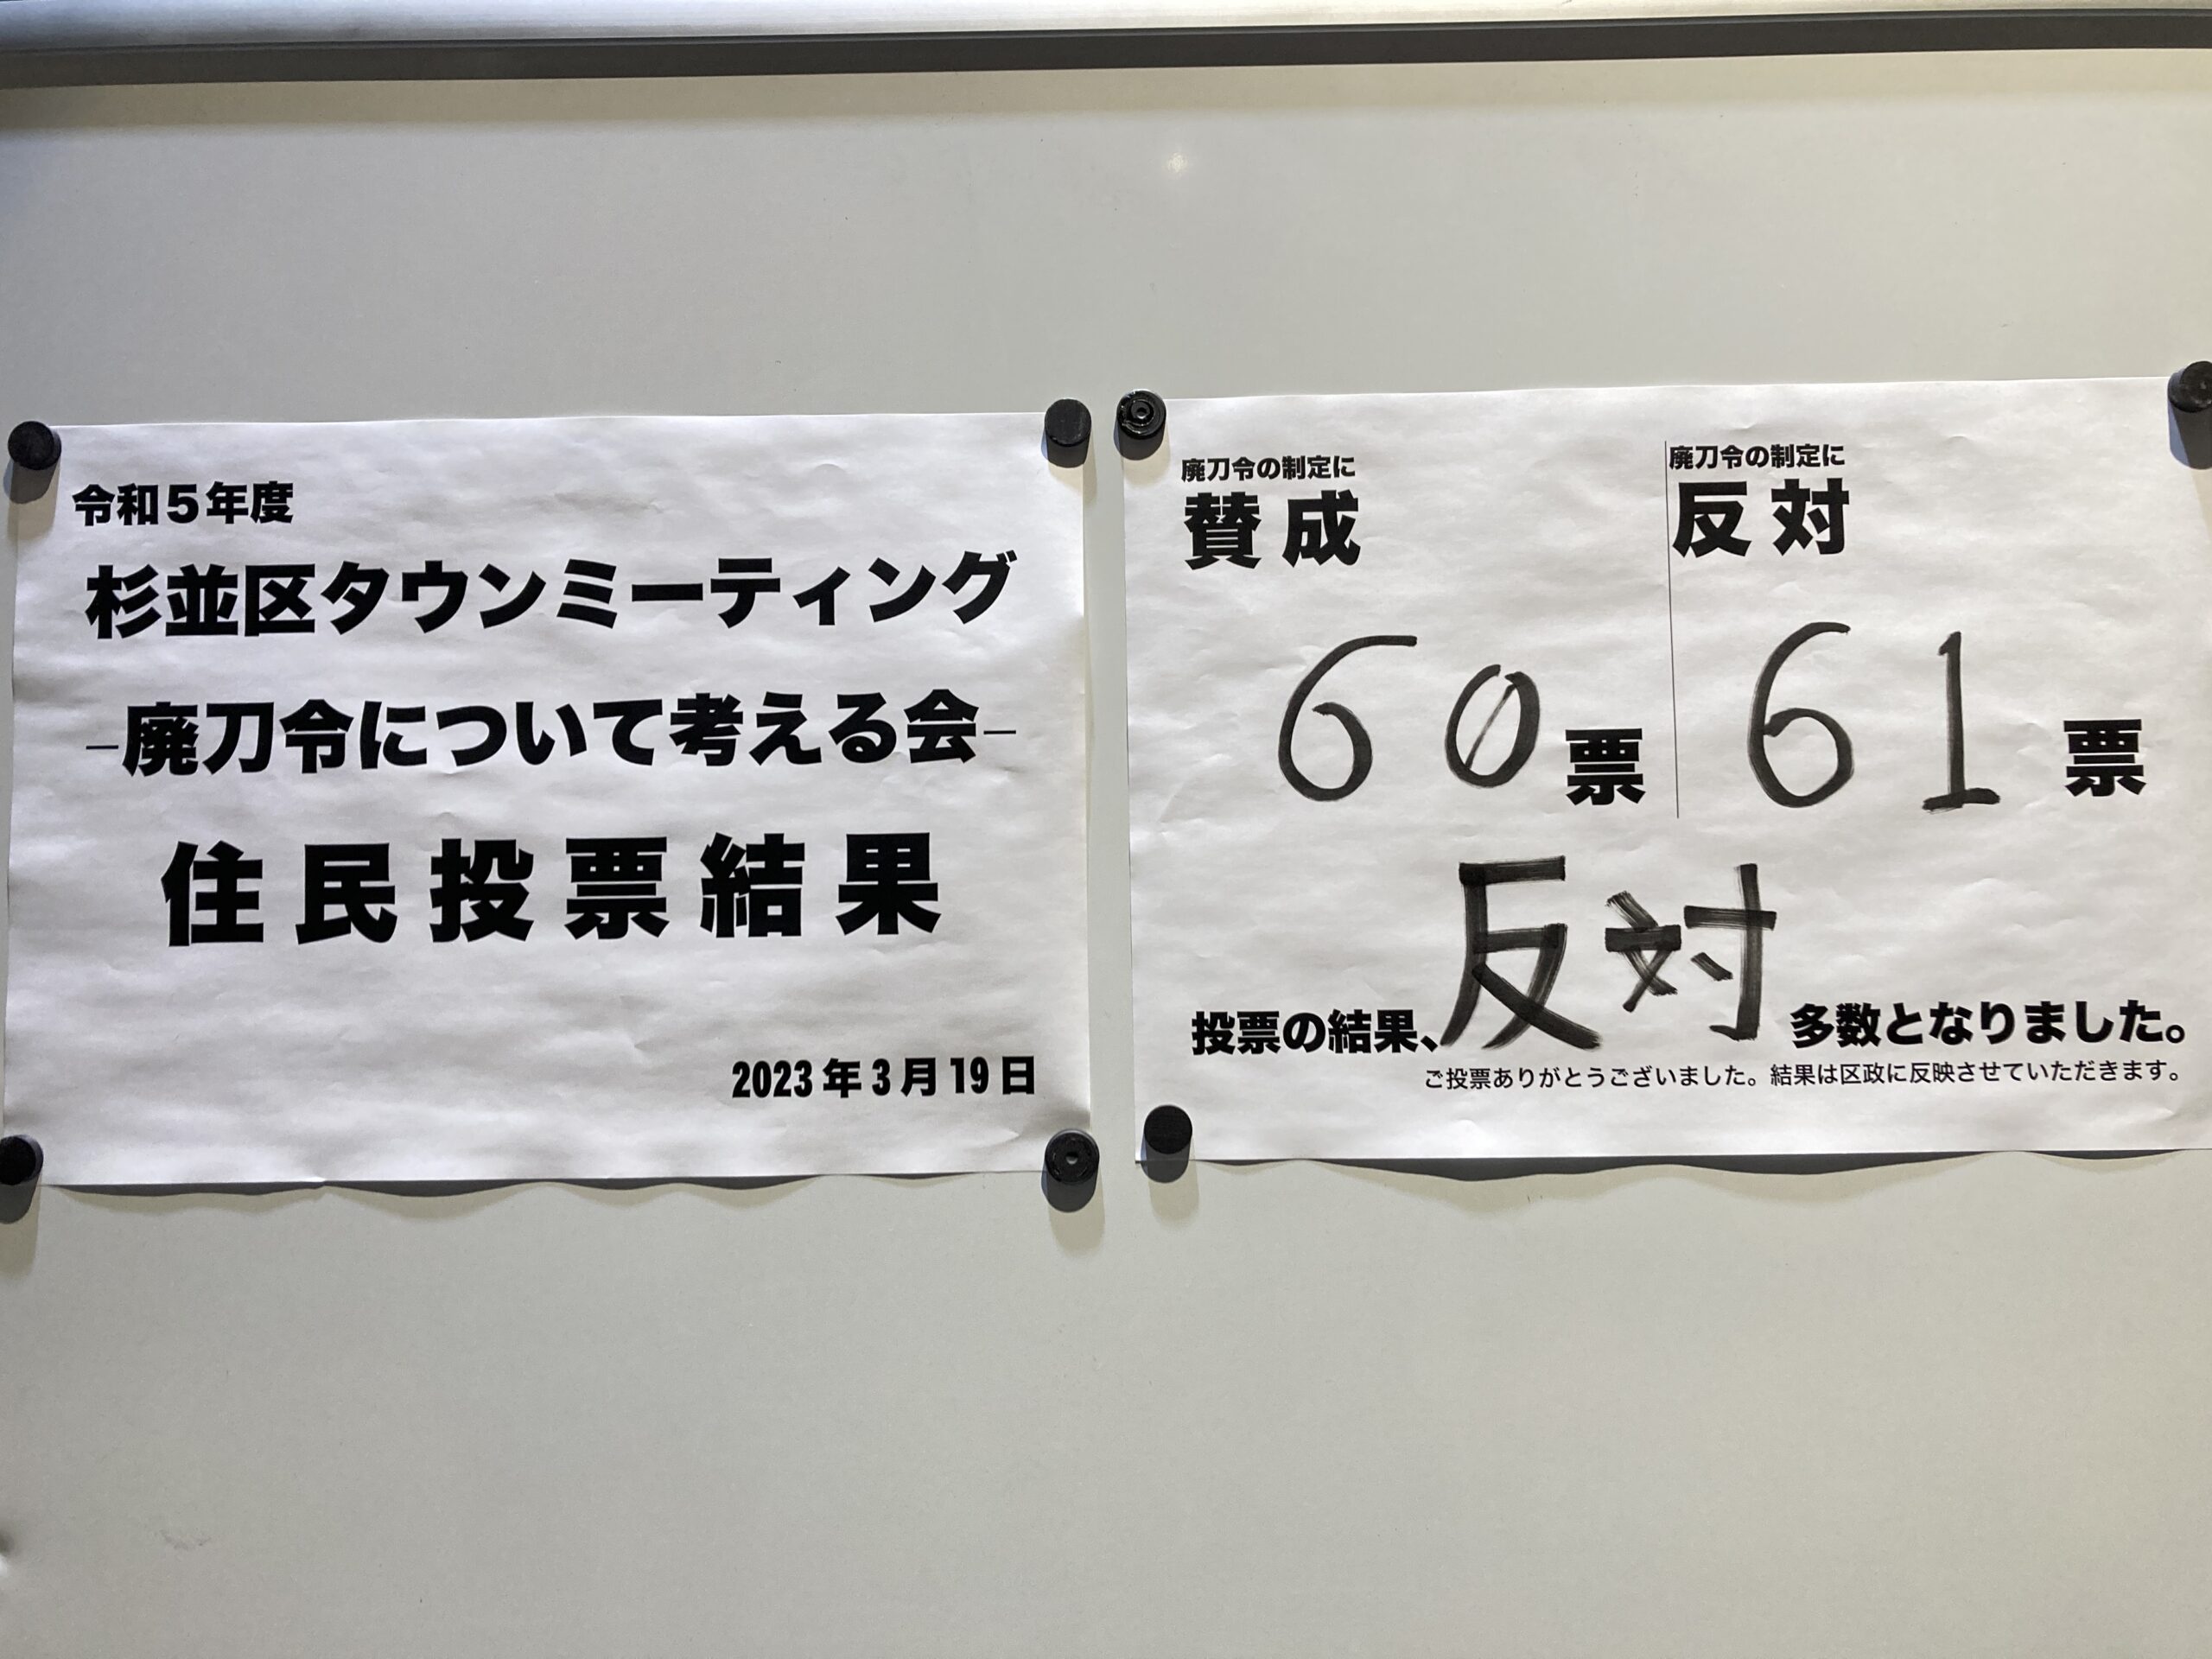 令和5年度
杉並区タウンミーティング
–廃刀令について考える会–
住民投票結果
2023年3月19日
廃刀令の制定に
賛成
60票
廃刀令の制定に
反対
61票
投票の結果、反対多数となりました。
ご投票ありがとうございました。結果は区政に反映させていただきます。